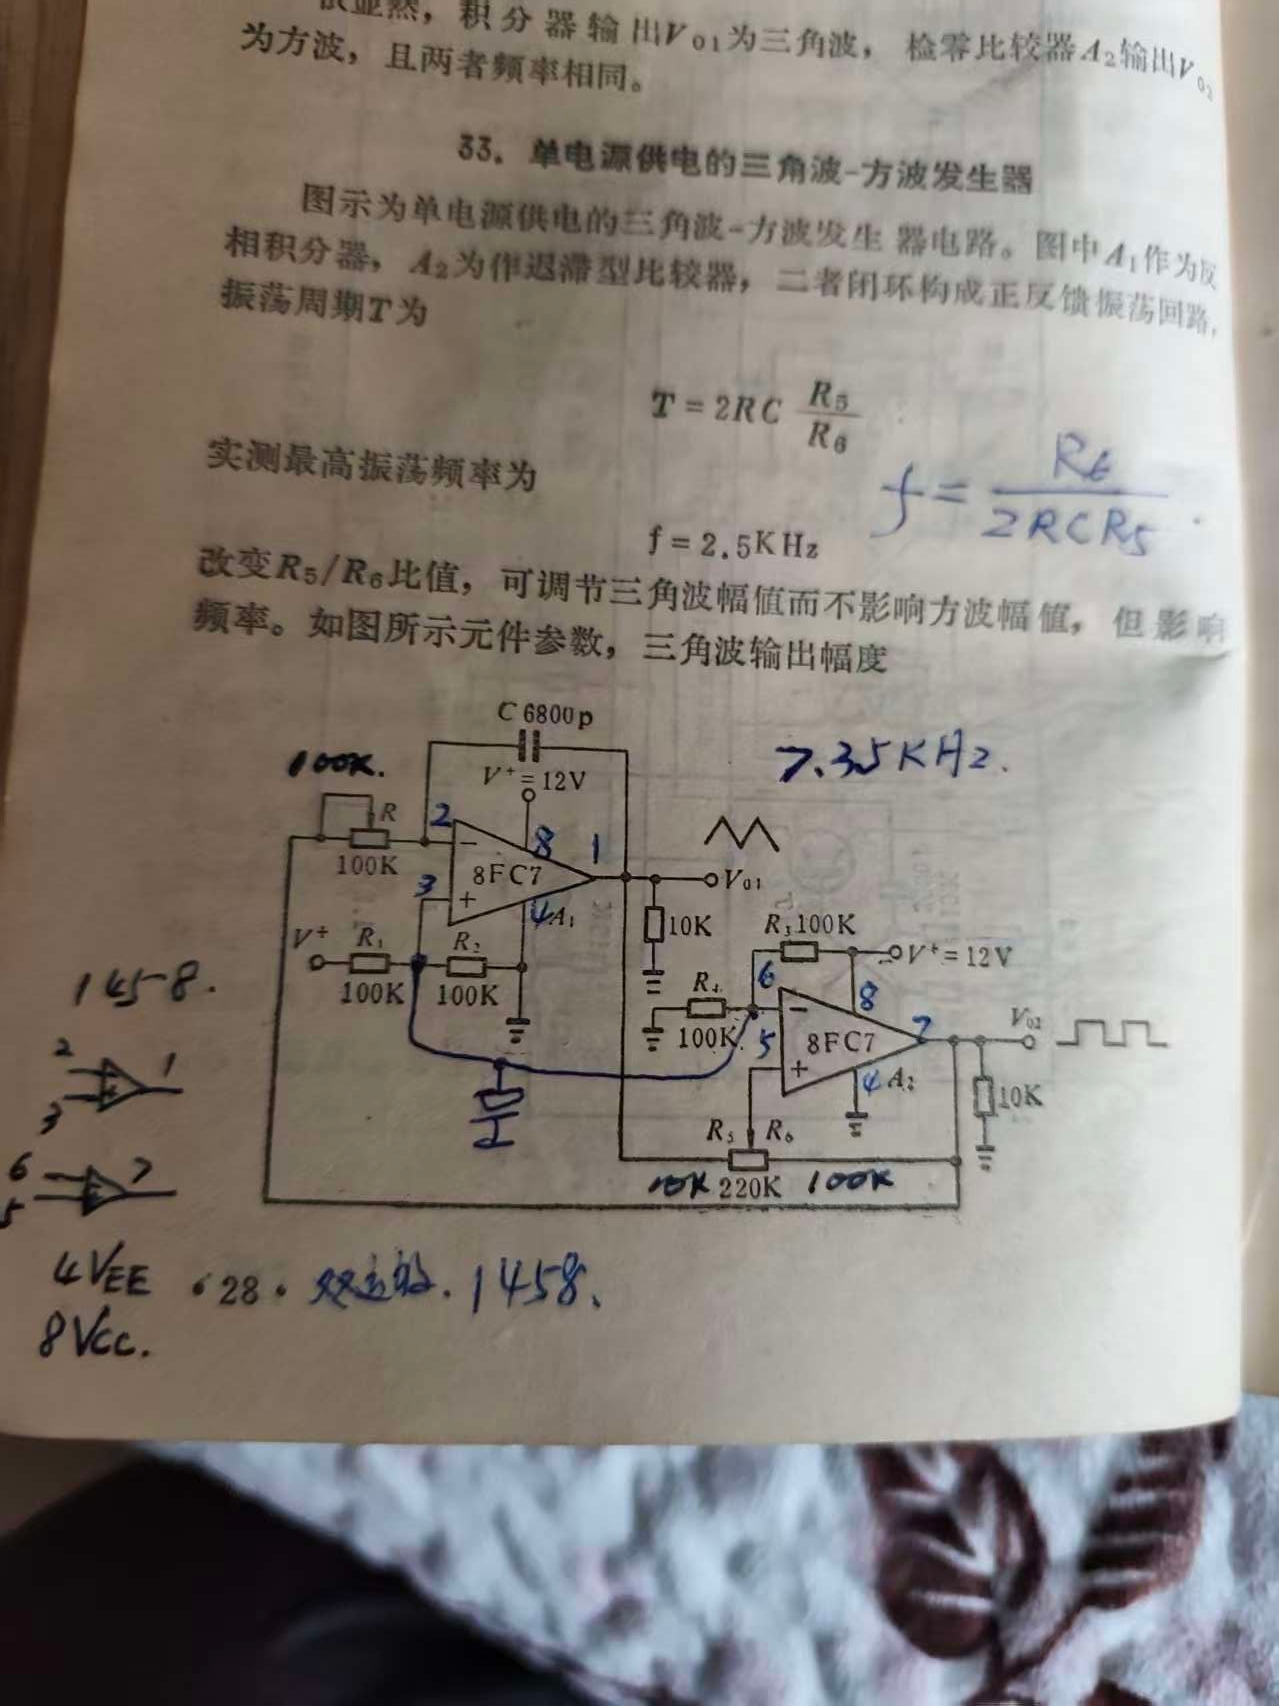 很显然，积分器输出V01为三角波，检零比较器A2输出V02
为方波，且两者频率相同。
33. 单电源供电的三角波-方波发生器
图示为单电源供电的三角波-方波发生器电路。图中A1作为反
相积分器，A2为作迟滞型比较器，二者闭环构成正反馈振荡回路，
振荡周期T为
T = 2RC R5/R6
实测最高振荡频率为
f = R6/2RCR5
f = 2.5KHz
改变R5/R6比值，可调节三角波幅值而不影响方波幅值，但影响
频率。如图所示元件参数，三角波输出幅度
C 6800p
7.35KHz.
100K.
V+ = 12V
R
100K
2
8
1
8FC7
3
4
A1
V01
10K
V+
R1
R2
100K
100K
R3 100K
V+ = 12V
6
R4
100K
5
8
8FC7
7
V02
4
A2
10K
R5
R6
10K
220K
100K
1458.
2
1
3
6
7
5
4VEE
·28·
1458.
8VCC.